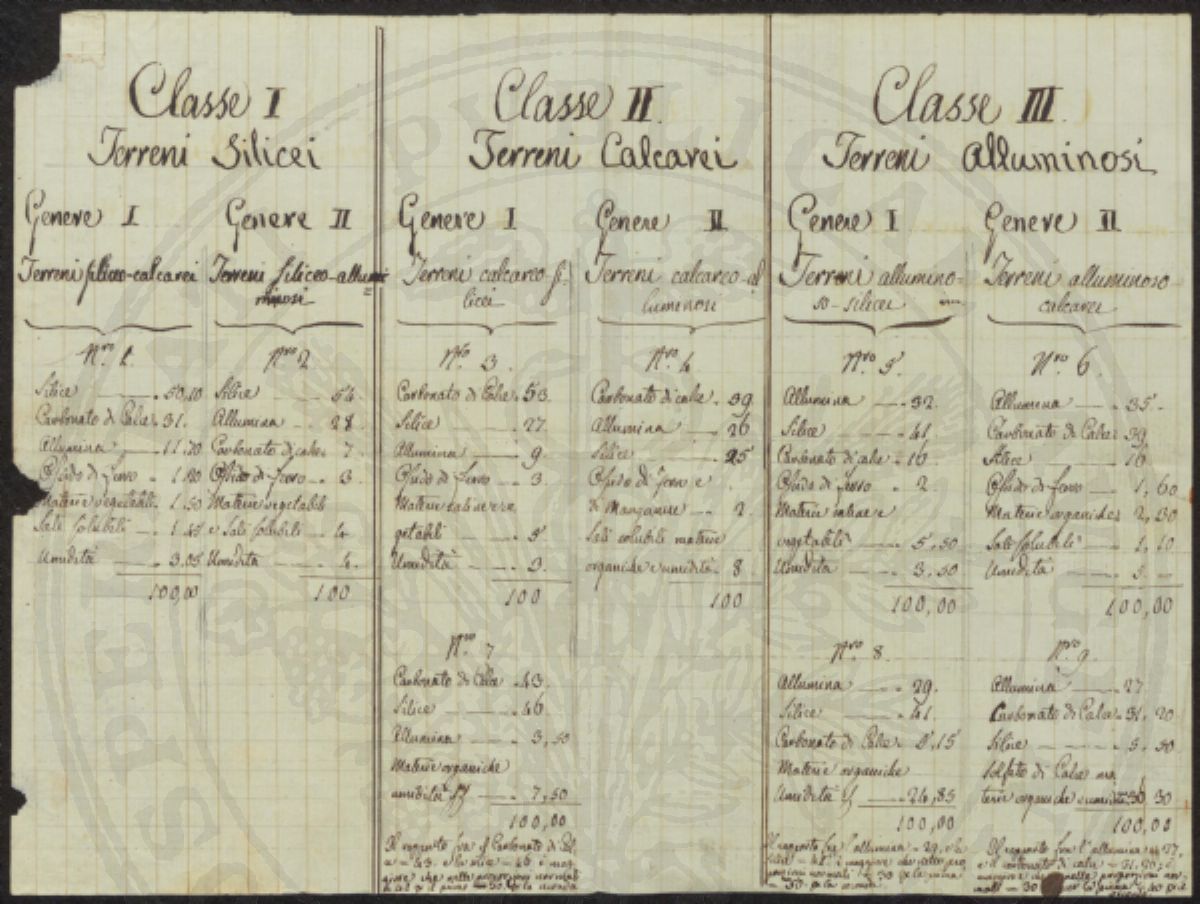 Classe I
Terreni Silicei
Genere I
Terreni siliceo-calcarei
Nro 1.
Silice 50,10
Carbonato di Calce 31.
Allumina 11,70
Ossido di ferro 1.20
Materie vegetabili 1.50
Sali solubili 1.45
Umidità 3.05
100,00
Genere II
Terreni siliceo-allumi=
minosi
Nro 2.
Silice 54
Allumina 28
Carbonato di calce 7
Ossido di ferro 3
Materie vegetabili
e Sali solubili 4
Umidità 4
100
Classe II.
Terreni Calcarei
Genere I
Terreni calcareo si-
licei
Nro 3.
Carbonato di Calce 53
Silice 27
Allumina 9
Ossido di ferro 3
Materie saline e ve
getabili 5
Umidità 3
100
Nro 7
Carbonato di Calce 43
Silice 46
Allumina 3,50
Materie organiche
umidità 7,50
100,00
Il rapporto fra il Carbonato di Cal
ce = 43 e la silice = 46 è mag
giore che nelle proporzioni normali
Genere II
Terreni calcareo-al
luminosi
Nro 4
Carbonato di calce 39
Allumina 26
Silice 25
Ossido di ferro e
di Manganese 2
Sali solubili materie
organiche e umidità 8
100
Classe III.
Terreni alluminosi
Genere I
Terreni allumino-
so-silicei
Nro 5
Allumina 32
Silice 41
Carbonato di calce 16
Ossido di ferro 2
Materie saline e
vegetabili 5,50
Umidità 3,50
100,00
Nro 8.
Allumina 29
Silice 41
Carbonato di Calce 5,15
Materie organiche
Umidità 24,85
100,00
Il rapporto fra l'allumina = 29, e la
silice = 41 è maggiore che nelle pro
porzioni normali = 30 per la prima
Genere II
Terreni alluminoso
calcarei
Nro 6.
Allumina 35
Carbonato di Calce 39
Silice 16
Ossido di ferro 1,60
Materie organiche 2,30
Sali solubili 1,10
Umidità 5
100,00
Nro 9.
Allumina 27
Carbonato di Calce 31,20
Silice 5.50
Solfato di Calce ma
terie organiche e umidità 30
100,00
Il rapporto fra l'allumina = 27,
e il carbonato di calce = 31,20, è
maggiore che nelle proporzioni nor
mali = 30 per la prima